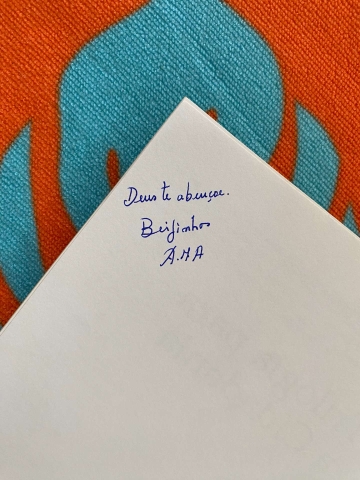 Deus te abençoe.
Beijinhos
A.M A